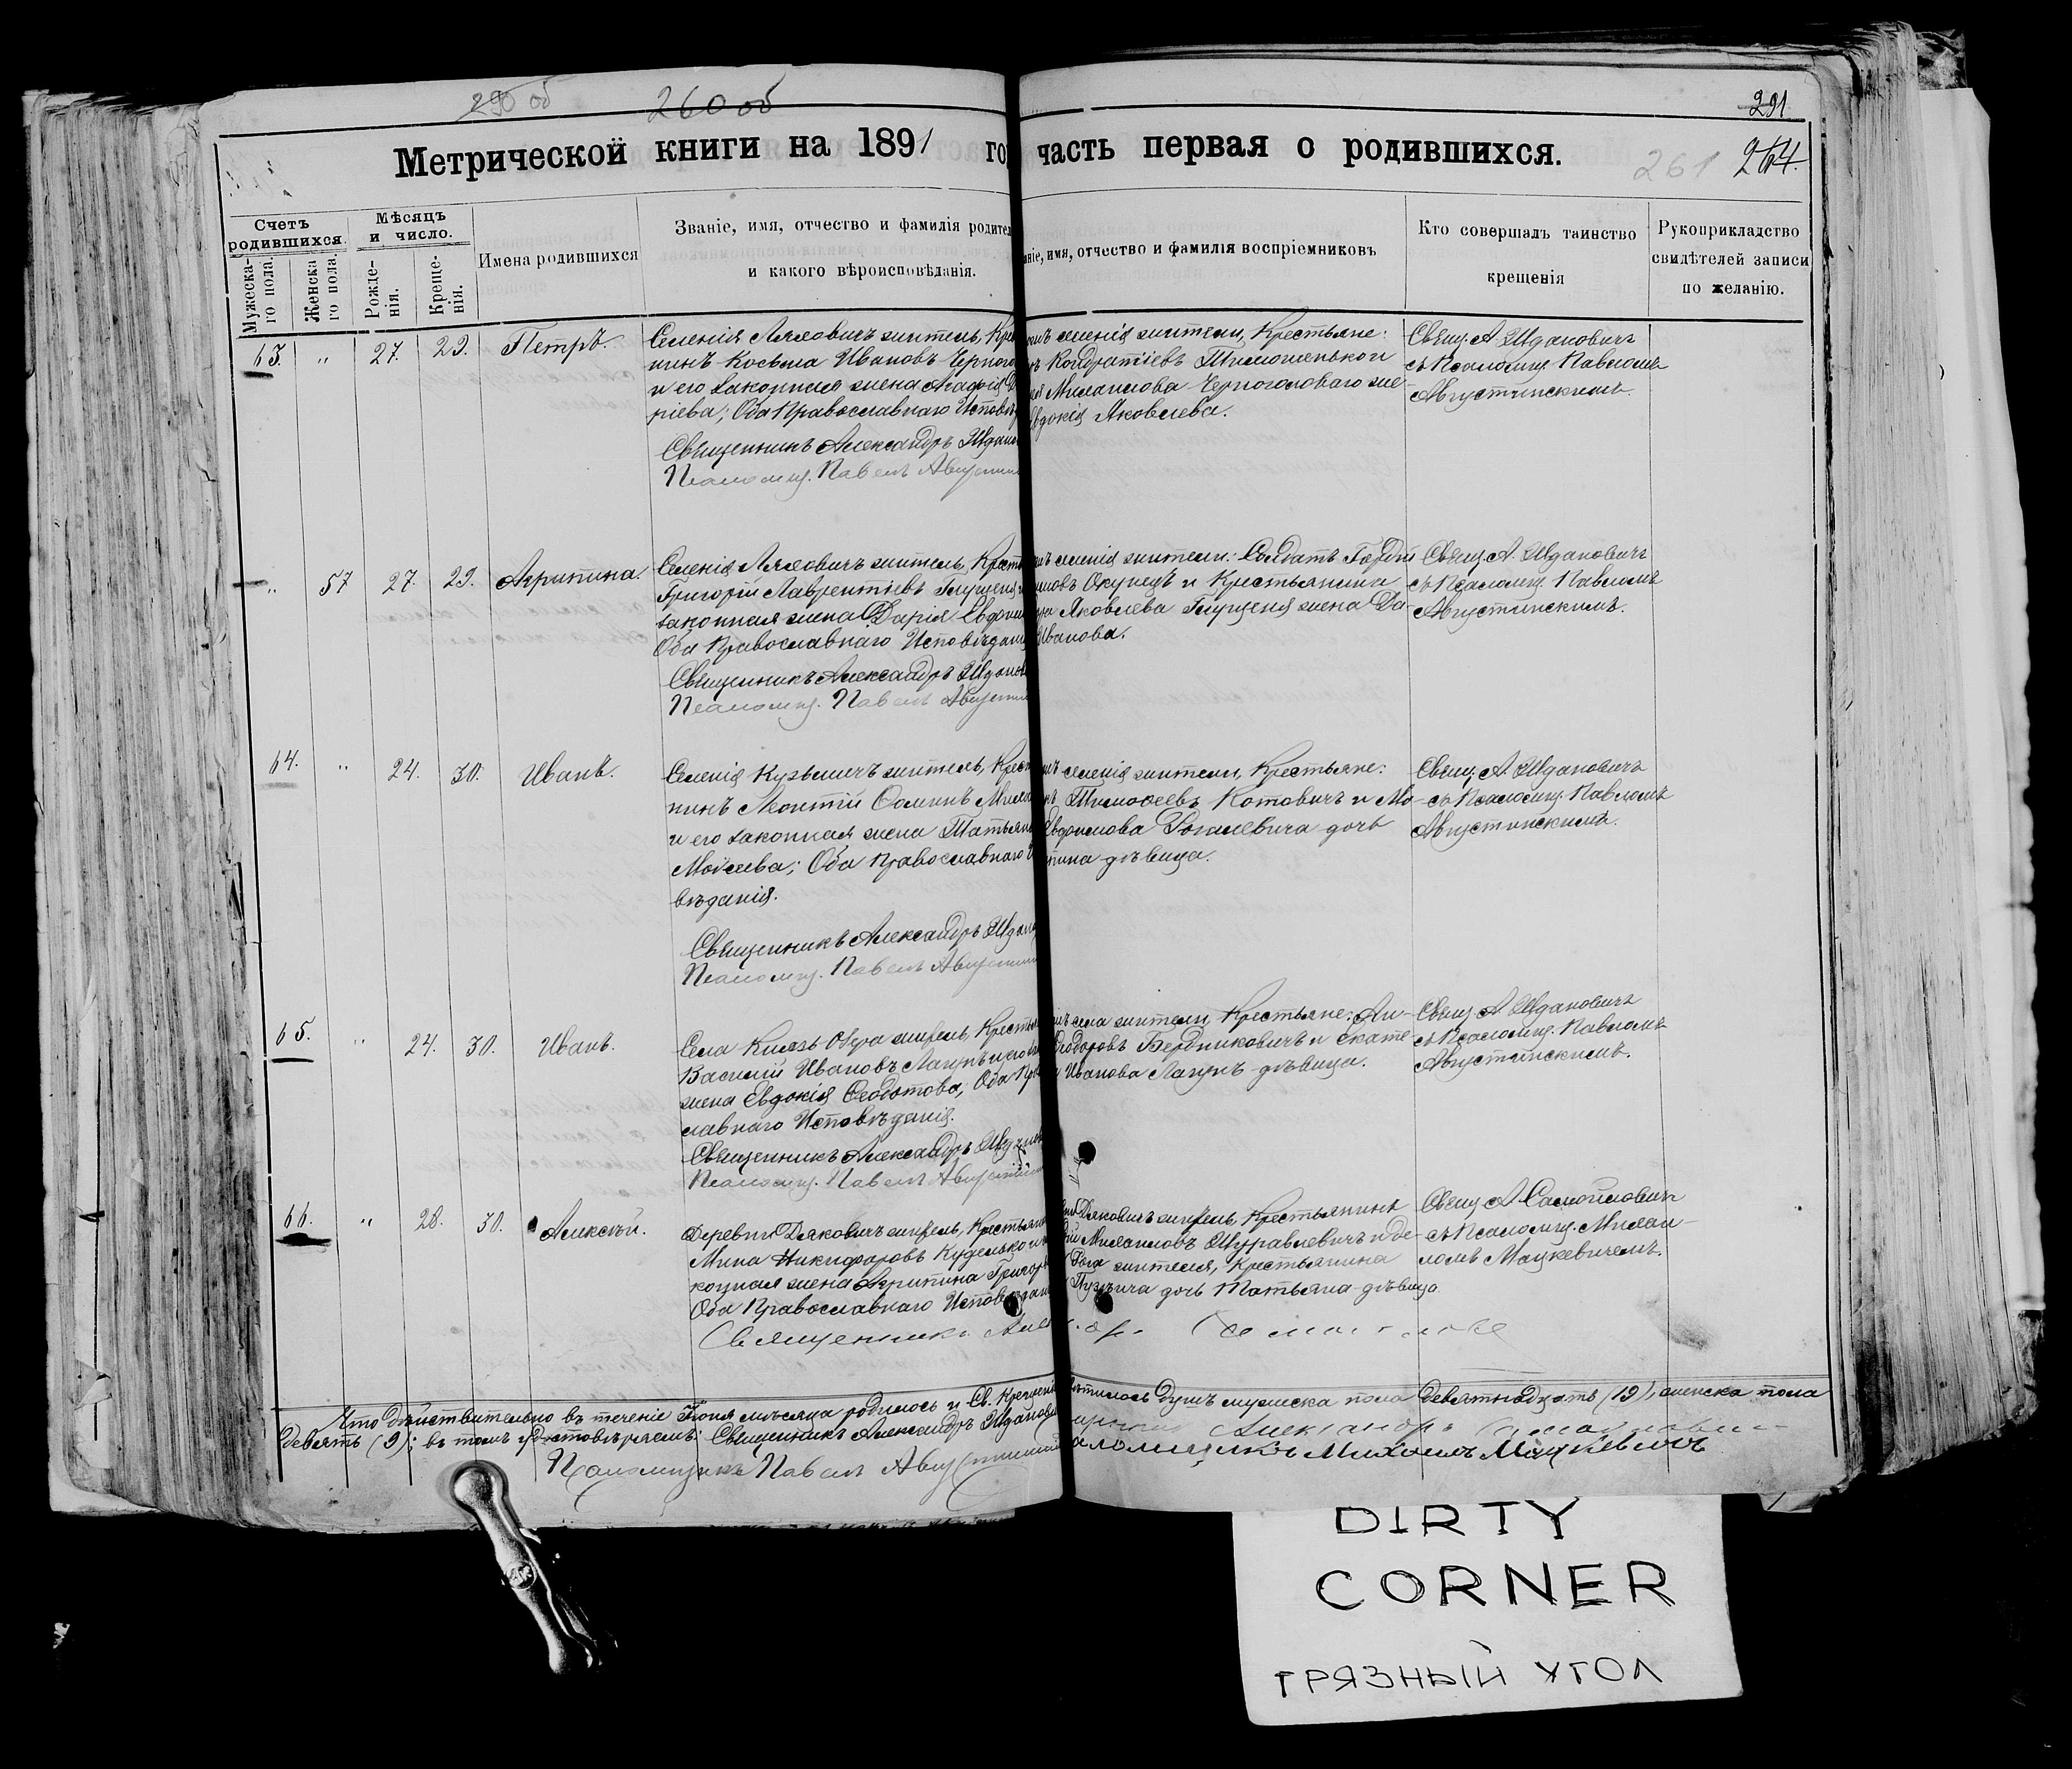 290 об
260 об
291
Метрической книги на 1891 го
часть первая о родившихся.
261
264.
Счетъ родившихся.
Мужеска-го пола.
Женска го пола.
Мѣсяцъ и число.
Рожде-нія.
Креще-нія.
Имена родившихся
Званіе, имя, отчество и фамилія родител
и какого вѣроисповѣданія.
ніе, имя, отчество и фамилія воспріемниковъ
Кто совершалъ таинство
крещенія
Рукоприкладство
свидѣтелей записи
по желанію.
63. " 27. 29. Петръ.
Селенія Ляховичъ житель, Кре
нинъ Косьма Ивановъ Черного
и его законная жена Агафія
ріева; Оба Православнаго Исповѣ
Священникъ Александръ Ждан
Псаломщ. Павелъ Августин
селенія жители, Крестьяне:
Кондратіевъ Тимошенько и
Михаилова Черноголоваго же-
Евдокія Яковлева.
Свящ. А. Ждановичъ
съ Псаломщ. Павломъ
Августинскимъ.
" 57 27. 29. Агрипина.
Селенія Ляховичъ житель, Крест
Григорій Лаврентіевъ Глущеня
законная жена Дарія Евфим
Оба Православнаго Исповѣдані
Священникъ Александръ Ждано
Псаломщ. Павелъ Августин
селенія жители: Солдатъ Гордій
Окунецъ и Крестьянина
Яковлева Глущеня жена Да-
Иванова.
Свящ. А. Ждановичъ
съ Псаломщ. Павломъ
Августинскимъ.
64. " 24. 30. Иванъ.
Селенія Кузьмичъ житель, Крест
нинъ Леонтій Ѳоминъ
и его законная жена Татьяна
Моисеева; Оба Православнаго
вѣданія.
Священникъ Александръ Ждан
Псаломщ. Павелъ Августин
селенія жители, Крестьяне:
Тимоѳеевъ Котовичъ и
Евфимова дочь
дѣвица.
Свящ. А. Ждановичъ
съ Псаломщ. Павломъ
Августинскимъ.
65. " 24. 30. Иванъ.
Села Князь Озера житель, Крестья
Василій Ивановъ и его
жена Евдокія Ѳеодотова, Оба Пр
славнаго Исповѣданія.
Священникъ Александръ Ждан
Псаломщ. Павелъ Августин
села жители, Крестьяне: Ан-
Ѳеодоровъ Бердниковичъ и Екате-
Иванова дѣвица.
Свящ. А. Ждановичъ
съ Псаломщ. Павломъ
Августинскимъ.
66. " 28. 30. Алексѣй.
Деревни Дяковичъ житель, Крестьян
Мина Никифоровъ Куделько и
конная жена Агрипина Григор
Оба Православнаго Исповѣдан
Священникъ
Дяковичъ житель, Крестьянинъ
Михаиловъ Журавлевичъ и де-
Рога жителя, Крестьянина
дочь Татьяна дѣвица.
Свящ. А. Самойловичъ
съ Псаломщ. Михаи-
ломъ Мацкевичемъ.
Что дѣйствительно въ теченіе Іюня мѣсяца родилось и Св. Крещені
душъ мужеска пола девятнадцать (19), женска пола
девять (9); въ томъ удостовѣряемъ: Священникъ Александръ Жданови
Александръ
Псаломщикъ Павелъ
Михаилъ Мацкевичъ
DIRTY
CORNER
ГРЯЗНЫЙ УГОЛ